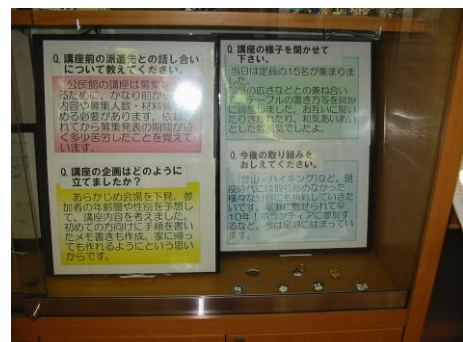 Q. 講座前の派遣先との話し合い
について教えてください。
公民館の講座は募集
るために、かなり前か
内容や募集人数・材料
める必要があります。依頼
れてから募集発表の期間が短
く多少苦労したことを覚えて
います。
Q. 講座の企画はどのように
立てましたか？
あらかじめ会場を下見。参
加者の年齢層や性別を予想し
て、講座内容を考えました。
初めての方向けに手順を書い
たメモ書きも作成。家に帰っ
ても作れるようにという思い
からです。
Q. 講座の様子を聞かせて
下さい。
当日は定員の15名が集まりま
した。
の広さなどとの兼ね合い
で、テーブルの置き方等を微妙
に調整しました。お互いに聞い
たりきかれたり、和気あいあい
とした雰囲気でしたよ。
Q. 今後の取り組みを
おしえてください。
登山・ハイキングなど、現
役時代には取り組めなかった
様々な分野にも挑戦していきた
いです。
10年！ボランティアに参加す
るなど、今は足跡にはまってい
ます。